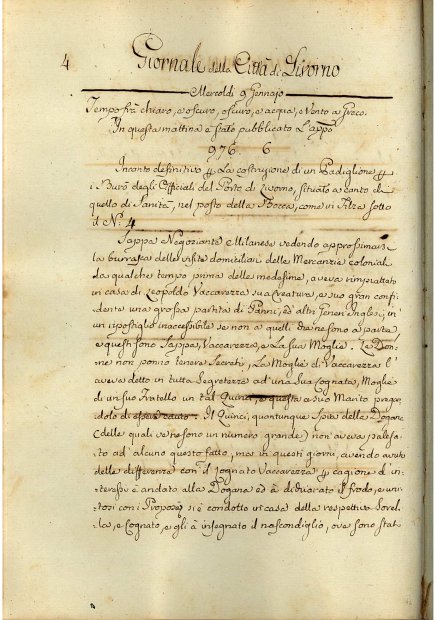 4
Giornale della Città di Livorno
Mercoldì 9 Gennajo
Tempo frà chiaro, e oscuro, oscuro, e acqua, e Vento a Greco.
In questa mattina è stato pubblicato L'app.o
976 6
Inconto definitivo p La costruzione di un Padiglione p
i Burò degli Officiali del Porto di Livorno, situato accanto a
quello di Sanità, nel posto della Bocca, come in Filza sotto
il N.° 4
Jappa Negoziante Milanese vedendo approssimarsi
la burrasca delle visite domiciliari delle Mercanzie Coloniali
da qualche tempo prima delle medesime, aveva rimpiattato
in casa di Leopoldo Vaccarezza sua Creatura, e suo gran confi-
dente una grossa partita di Panni, ed altri Generi Inglesi, in
un ripostiglio inaccessibile se non a quelli che ne sono a parte,
e questi sono Jappa, Vaccarezza, e La sua Moglie. Le Don-
ne non ponno tenere Secreti, La Moglie di Vaccarezza l'
aveva detto in tutta Segretezza ad una Sua Cognata, Moglie
di un suo Fratello un tal Quinci, e questa a suo Marito pregan-
dolo di essere cauto. Il Quinci, quantunque Spia delle Dogane
(delle quali ve ne sono un numero grande) non aveva palesa-
to ad alcuno questo fatto, ma in questi giorni, avendo avuto
delle differenze con il Cognato Vaccarezza p cagione d'in-
teressi è andato alla Dogana ed à divorato il frodo, e uni-
tosi con i Preposé si è condotto in casa della respettiva Sorel-
la, e Cognato, e gli à insegnato il nascondiglio, ove sono stati